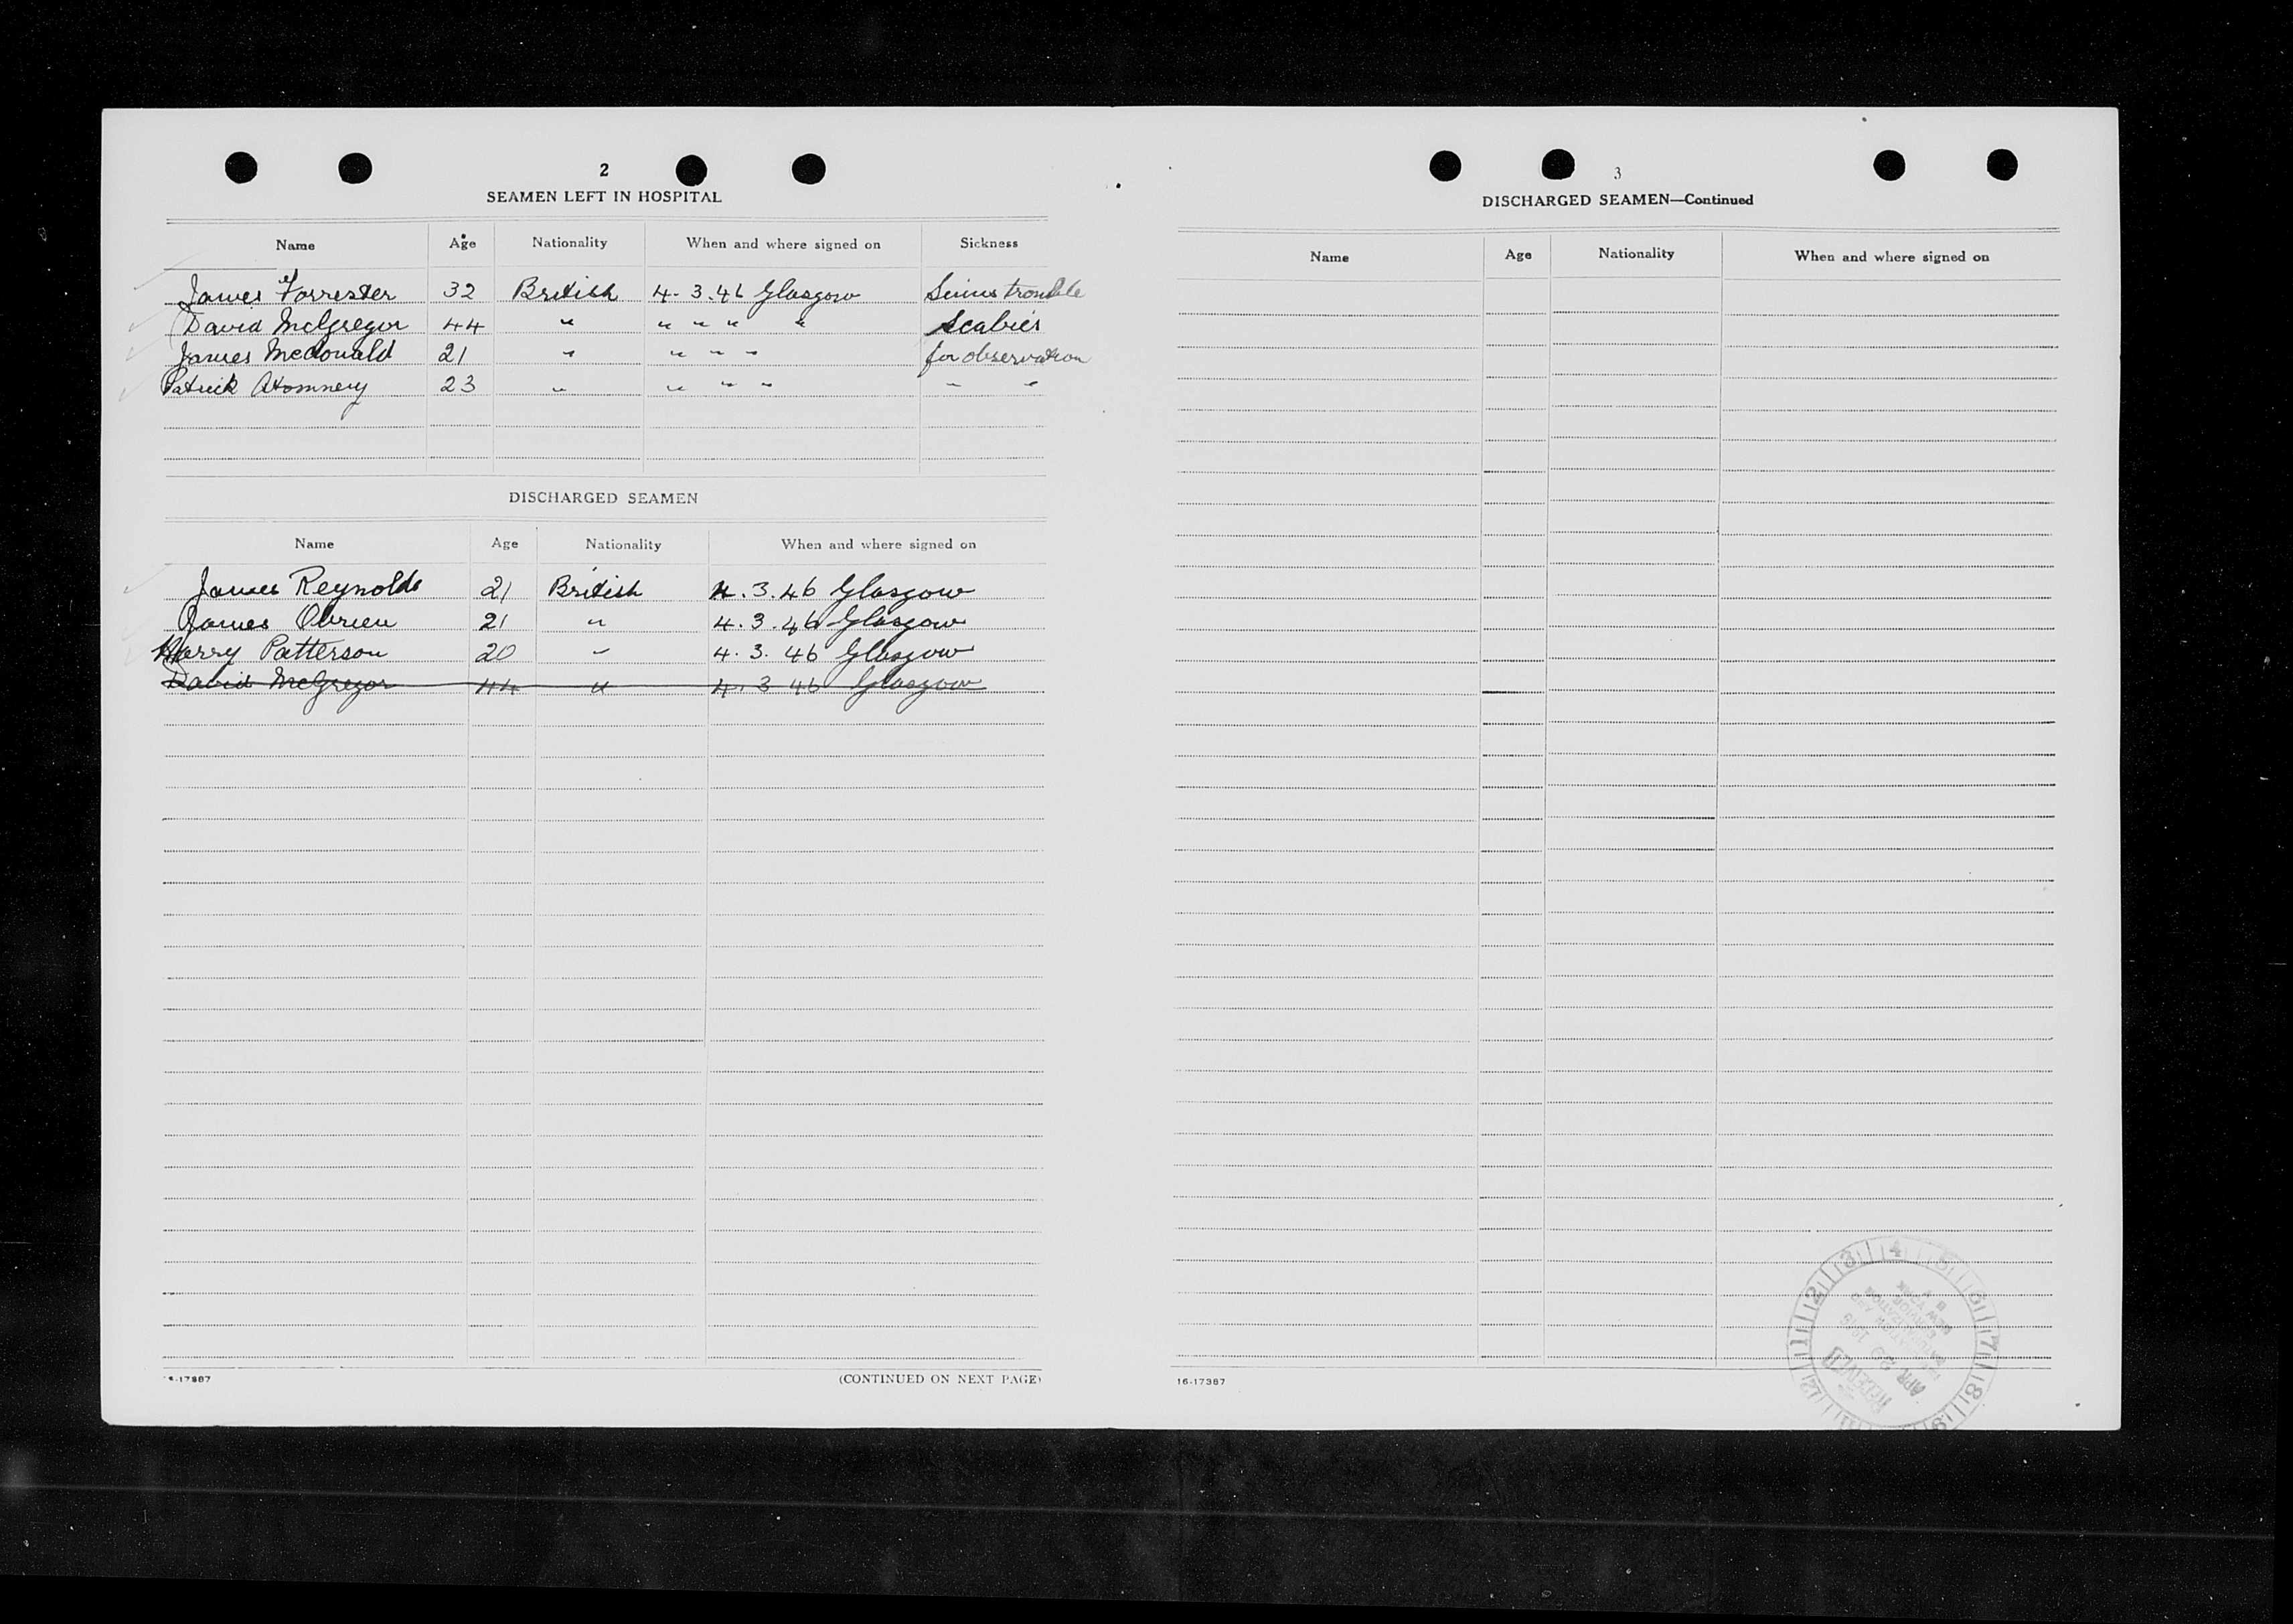 2
SEAMEN LEFT IN HOSPITAL
Name Age Nationality When and where signed on Sickness
James Forrester 32 British 4.3.46 Glasgow Sinus trouble
David McGregor 44 " " " " " Scabies
James McDonald 21 " " " " for observation
Patrick 23 " " " " " "
DISCHARGED SEAMEN
Name Age Nationality When and where signed on
James Reynolds 21 British 4.3.46 Glasgow
James Obrien 21 " 4.3.46 Glasgow
Harry Patterson 20 " 4.3.46 Glasgow
David McGregor 44 " 4.3 46 Glasgow
16-17387
(CONTINUED ON NEXT PAGE)
3
DISCHARGED SEAMEN—Continued
Name Age Nationality When and where signed on
16-17387
RECEIVED
APR 29
NEW YORK
1 2 3 4 5 6 7 8 9 12